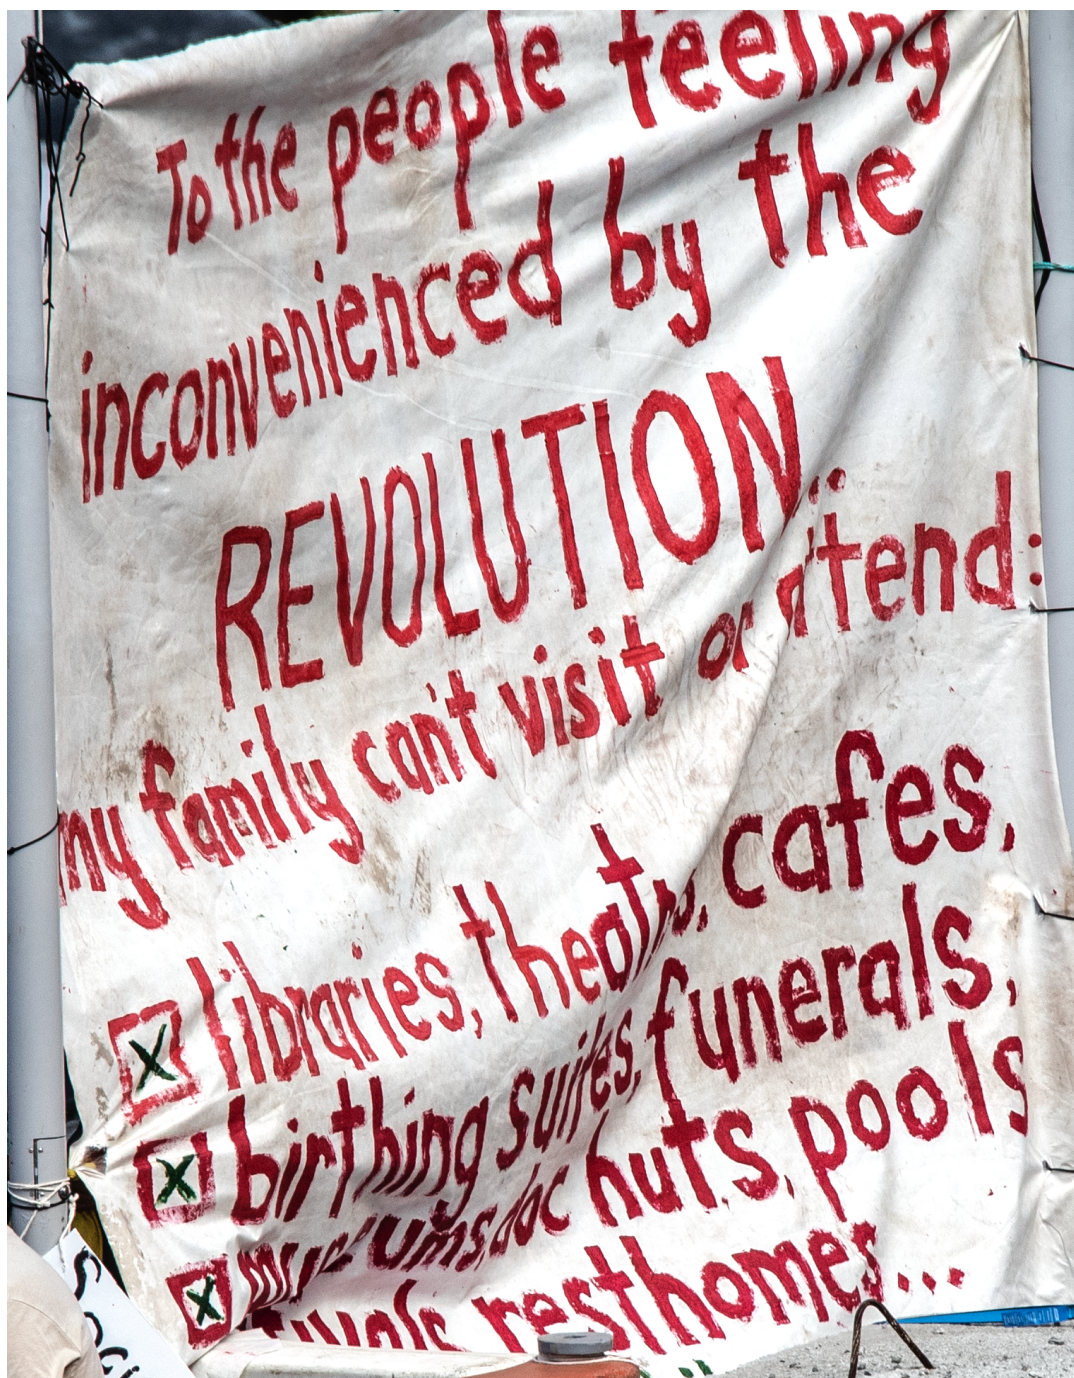 To the people feeling
inconvenienced by the
REVOLUTION...
my family can't visit or attend:
X libraries, theatres, cafes,
X birthing suites, funerals,
X museums, doc huts, pools
resthomes...